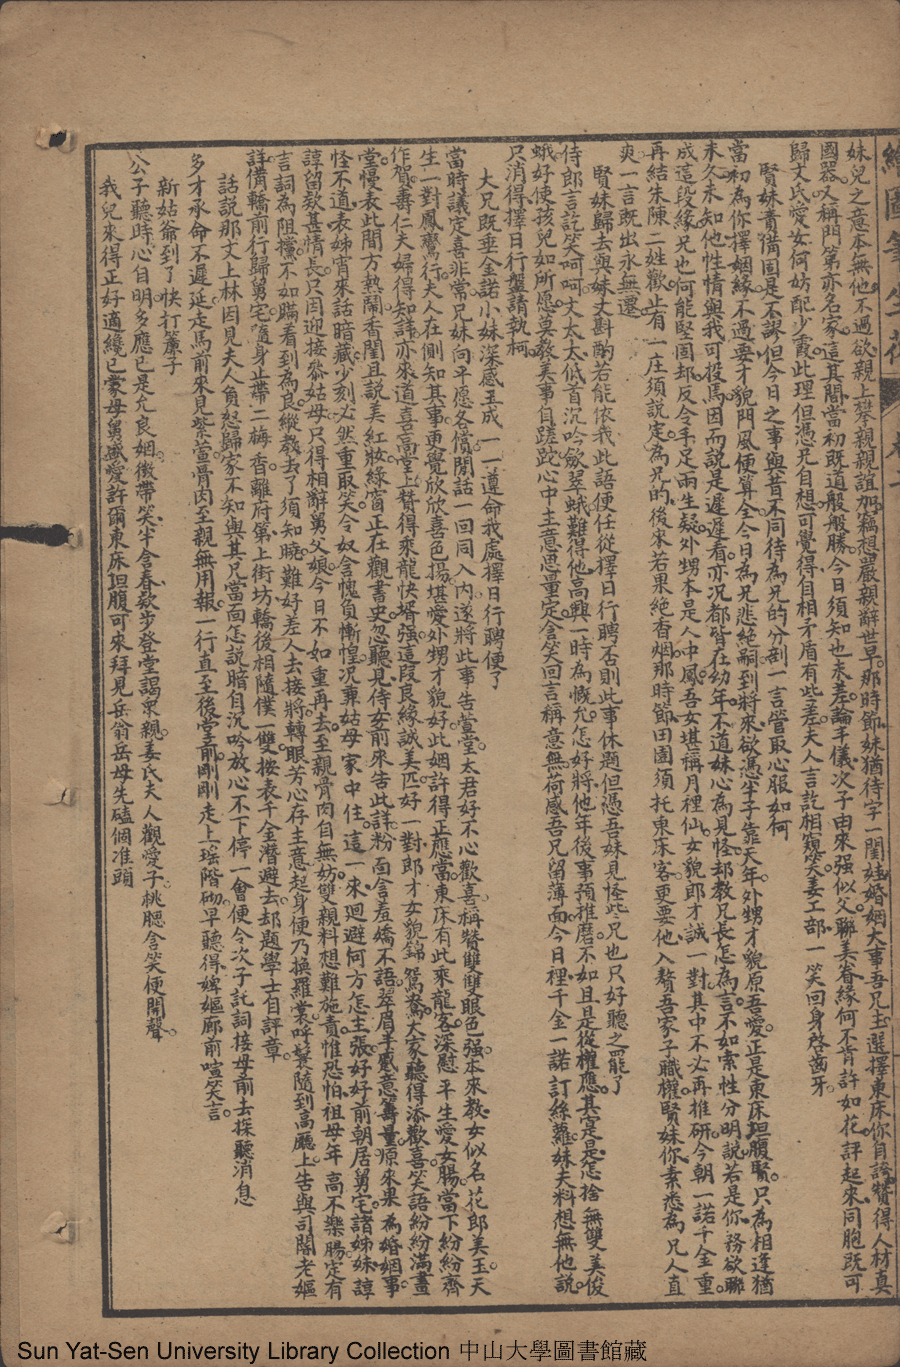 繪圖筆生花
妹兒之意本無他不過欲親上攀親親誼加竊想嚴親辭世早那時節妹猶待字一閨娃婚姻大事吾兄主選擇東床你自誇贊得人材真
國器又稱門第亦名家這其間當初既道般般勝今日須知也未差論丰儀次子由來强似父聯美眷緣何不肯許如花評起來同胞既可
歸文氏愛女何妨配少霞此理但憑兄自想可覺得自相矛盾有些差夫人言訖相窺笑姜工部一笑回身啓齒牙
賢妹責備固是不謬但今日之事與昔不同待為兄的分剖一言管取心服如何
當初為你擇姻緣不過要才貌門風便算全今日為兄悲絕嗣到將來欲憑半子靠天年外甥才貌原吾愛正是東床坦腹賢只為相逢猶
未久未知他性情與我可投焉因而說是遲遲看亦况都皆在幼年不道妹心為見怪却教兄長怎為言不如索性分明說若是你務欲聯
成這段緣兄也何能堅固却反令手足兩生疑外甥本是人中鳳吾女堪稱月裡仙女貌郎才誠一對其中不必再推研今朝一諾千金重
再結朱陳二姓歡止有一庄須說定為兄的後來若果絕香烟那時節田園須托東床客更要他入贅吾家子職權賢妹你素悉為兄人直
爽一言既出永無遷
賢妹歸去與妹丈斟酌若能依我此語便任從擇日行聘否則此事休題但憑吾妹見怪些兄也只好聽之罷了
侍郎言訖笑呵呵文太太低首沉吟歛翠蛾難得他高興一時為慨允怎好將他年後事預推磨不如且是從權應其實是怎捨無雙美俊
蛾好使孩兒如所愿莫教美事自蹉跎心中主意思量定含笑回言稱意無荷感吾兄留薄面今日裡千金一諾訂絲蘿妹夫料想無他說
只消得擇日行盤請執柯
大兄既垂金諾小妹深感玉成一一遵命我處擇日行聘便了
當時議定喜非常兄妹向平愿各償閒話一回同入內遂將此事告萱堂太君好不心歡喜稱贊雙雙眼色强本來教女似名花郎美玉天
生一對鳳鸞行夫人在側知其事更覺欣欣喜色揚堪愛外甥才貌好此姻許得正應當東床有此來龍客深慰平生愛女腸當下紛紛齊
作賀壽仁夫婦得知詳亦來道喜高堂上贊得來龍快婿强這段良緣誠美匹好一對郎才女貌錦鴛鴦大家聽得添歡喜笑語紛紛滿畫
堂慢表此間方熱鬧香閨且說美紅妝綠窗正在觀書史忽聽見侍女前來告此詳粉面含羞嬌不語翠眉半蹙意籌量原來果為婚姻事
怪不道表姊宵來話暗藏少刻必然重取笑令奴含愧負慚惶况兼姑母家中住這一來廻避何方怎主張好好前朝居舅宅諸姊妹諄
諄留欵甚情長只因迎接黎姑母只得相辭舅父娘今日不如重再去至親骨肉自無妨雙親料想難施責惟恐怕祖母年高不樂腸定有
言詞為阻攩不如瞞看到為良縱教去了須知曉難好差人去接將轉眼芳心存主意起身便乃換羅裳呼鬟隨到高廳上告與司閽老嫗
詳備轎前行歸舅宅隨身止帶二梅香離府第上街坊轎後相隨僕一雙按表千金潛避去却題學士自評章
話說那文上林因見夫人負怒歸家不知與其兄當面怎說暗自沉吟放心不下停一會便令次子託詞接母前去探聽消息
多才承命不遲延走馬前來見紫萱骨肉至親無用報一行直至後堂前剛剛走上瑤階砌早聽得婢嫗廊前喧笑言
新姑爺到了快打簾子
公子聽時心自明多應已是允良姻微帶笑半含春歛步登堂謁衆親姜氏夫人觀愛子桃腮含笑便開聲
我兒來得正好適纔已蒙母舅盛愛許爾東床坦腹可來拜見岳翁岳母先磕個准頭
Sun Yat-Sen University Library Collection 中山大學圖書館藏